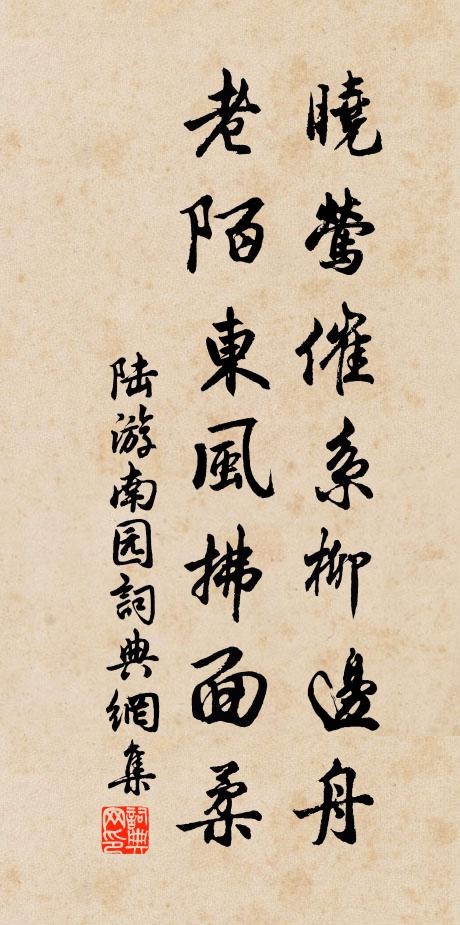 曉鶯催系柳邊舟
老陌東風拂面柔
陆游南园詞典網集
詞典网印